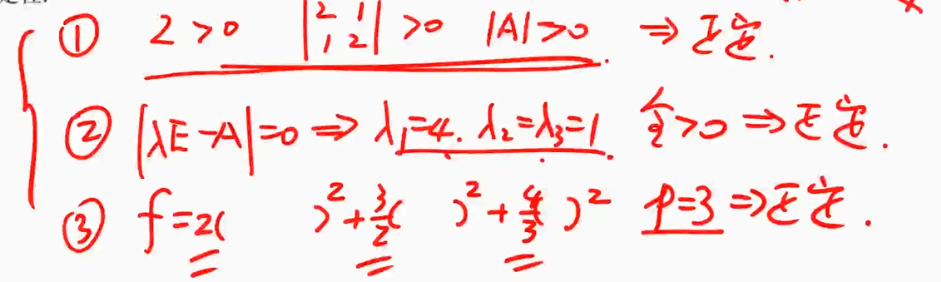 ① 2>0 |2 1 1 2|>0 |A|>0 ⇒正定.
② |λE-A|=0 ⇒ λ₁=4. λ₂=λ₃=1. 全>0 ⇒正定.
③ f=2( )²+3/2( )²+4/3( )² p=3 ⇒正定.